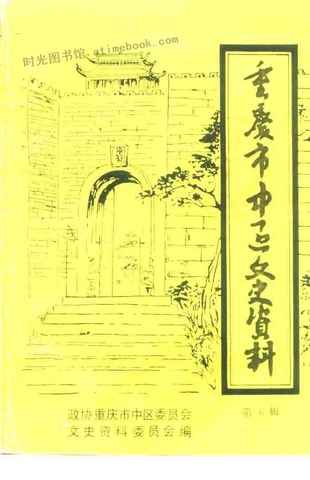 时光图书馆.itimebook.com
重慶市中区文史資料
政协重庆市中区委员会
文史资料委员会编